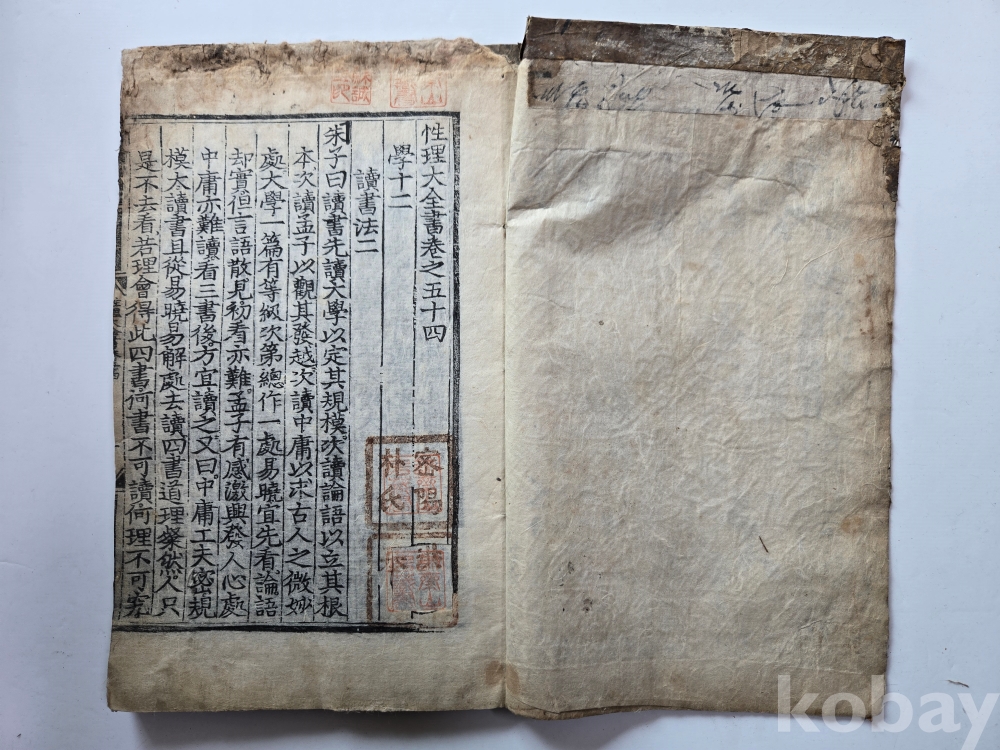 性理大全書卷之五十四
學十二
讀書法二
朱子曰讀書先讀大學以定其規模次讀論語以立其根
本次讀孟子以觀其發越次讀中庸以求古人之微妙
處大學一篇有等級次第總作一處易曉宜先看論語
却實但言語散見初看亦難孟子有感激興發人心處
中庸亦難讀看三書後方宜讀之又曰中庸工夫密規
模大讀書且從易曉易解處去讀四書道理粲然人只
是不去看若理會得此四書何書不可讀何理不可究
密陽
朴氏
kobay